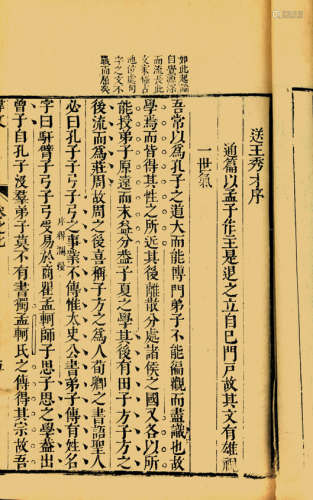 如此起論
自覺源深
而流長此
文家極占
地位處句
字之文不
送王秀才序
通篇以孟子作主是退之立自己門戶故其文有雄視
一世氣
吾常以為孔子之道大而能博門弟子不能徧觀而盡識也故
學焉而皆得其性之所近其後離散分處諸侯之國又各以所
能授弟子原遠而末益分蓋子夏之學其後有田子方子方之
後流而為莊周故周之後喜稱子方之為人荀卿之書語聖人
必曰孔子子弓子弓之事業不傳惟太史公書弟子傳有姓名
字曰馯臂子弓子弓受易於商瞿孟軻師子思子思之學蓋出
曾子自孔子沒羣弟子莫不有書獨孟軻氏之傳得其宗故吾